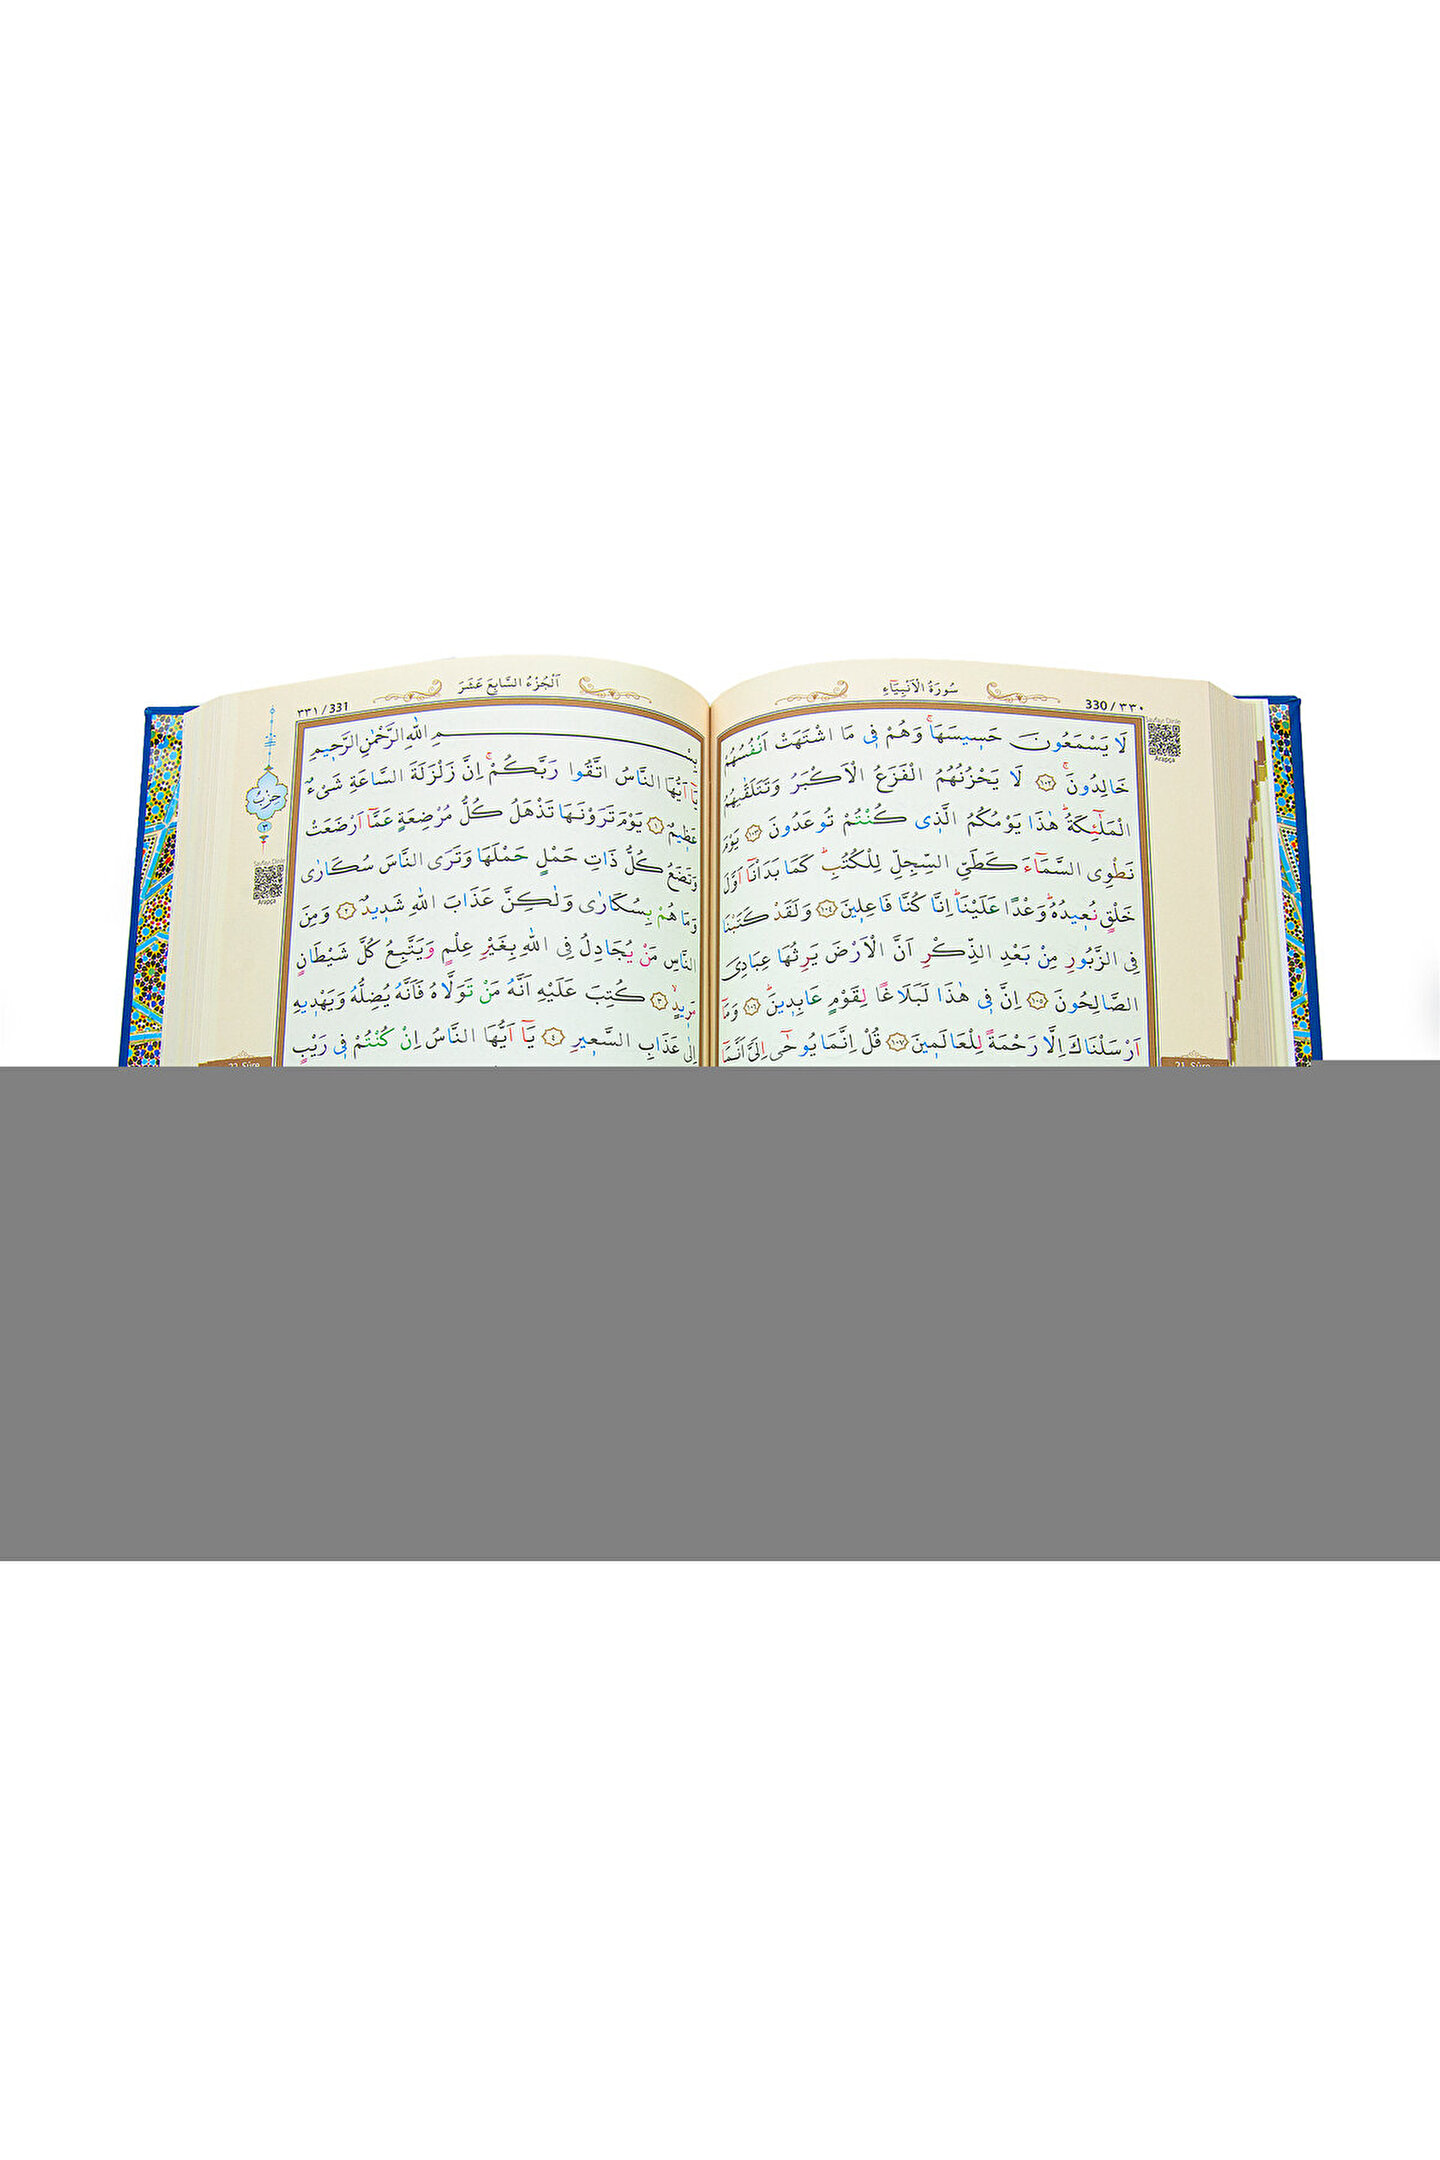 330 / ٣٣٠
سُورَةُ الْاَنْبِيَٓاءِ
Sayfayı Dinle
Arapça
لَا يَسْمَعُونَ حَسٖيسَهَاۚ وَهُمْ فٖي مَا اشْتَهَتْ اَنْفُسُهُمْ
خَالِدُونَۚ ١٠٢ لَا يَحْزُنُهُمُ الْفَزَعُ الْاَكْبَرُ وَتَتَلَقّٰيهُمُ
الْمَلٰٓئِكَةُؕ هٰذَا يَوْمُكُمُ الَّذٖي كُنْتُمْ تُوعَدُونَ ١٠٣ يَوْمَ
نَطْوِي السَّمَٓاءَ كَطَيِّ السِّجِلِّ لِلْكُتُبِؕ كَمَا بَدَأْنَٓا اَوَّلَ
خَلْقٍ نُعٖيدُهُؕ وَعْدًا عَلَيْنَاؕ اِنَّا كُنَّا فَاعِلٖينَ ١٠٤ وَلَقَدْ كَتَبْنَا
فِي الزَّبُورِ مِنْ بَعْدِ الذِّكْرِ اَنَّ الْاَرْضَ يَرِثُهَا عِبَادِيَ
الصَّالِحُونَ ١٠٥ اِنَّ فٖي هٰذَا لَبَلَاغًا لِقَوْمٍ عَابِدٖينَؕ ١٠٦ وَمَٓا
اَرْسَلْنَاكَ اِلَّا رَحْمَةً لِلْعَالَمٖينَ ١٠٧ قُلْ اِنَّمَا يُوحٰٓى اِلَيَّ اَنَّمَٓا
21. Sûre
٣٣١ / 331
اَلْجُزْءُ السَّابِعَ عَشَرَ
حِزْبٌ
٣
Sayfayı Dinle
Arapça
بِسْمِ اللّٰهِ الرَّحْمٰنِ الرَّحٖيمِ
يَٓا اَيُّهَا النَّاسُ اتَّقُوا رَبَّكُمْۚ اِنَّ زَلْزَلَةَ السَّاعَةِ شَيْءٌ
عَظٖيمٌ ١ يَوْمَ تَرَوْنَهَا تَذْهَلُ كُلُّ مُرْضِعَةٍ عَمَّٓا اَرْضَعَتْ
وَتَضَعُ كُلُّ ذَاتِ حَمْلٍ حَمْلَهَا وَتَرَى النَّاسَ سُكَارٰى
وَمَا هُمْ بِسُكَارٰى وَلٰكِنَّ عَذَابَ اللّٰهِ شَدٖيدٌ ٢ وَمِنَ
النَّاسِ مَنْ يُجَادِلُ فِي اللّٰهِ بِغَيْرِ عِلْمٍ وَيَتَّبِعُ كُلَّ شَيْطَانٍ
مَرٖيدٍۙ ٣ كُتِبَ عَلَيْهِ اَنَّهُ مَنْ تَوَلَّاهُ فَاَنَّهُ يُضِلُّهُ وَيَهْدٖيهِ
اِلٰى عَذَابِ السَّعٖيرِ ٤ يَٓا اَيُّهَا النَّاسُ اِنْ كُنْتُمْ فٖي رَيْبٍ
22. Sûre